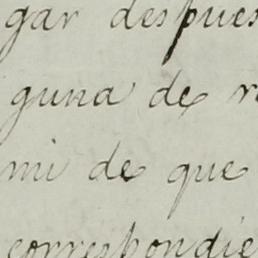 gar despues
guna de r
mi de que
correspondie